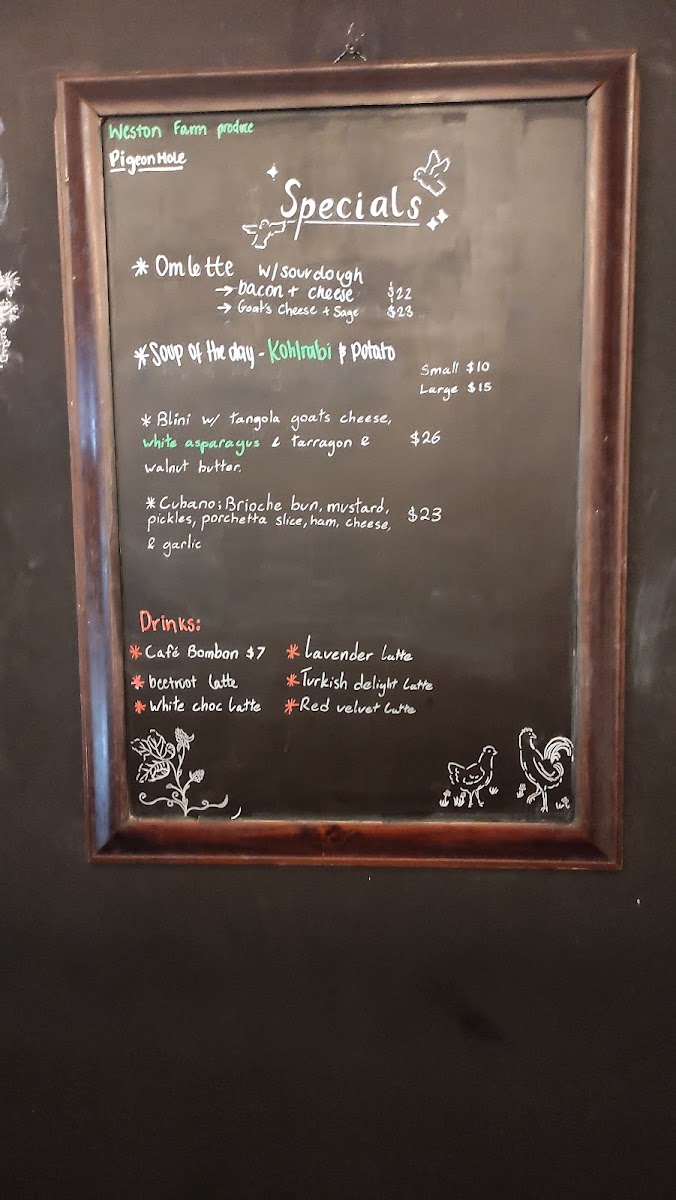 Weston Farm produce
PigeonHole
Specials
* Omlette w/sourdough
→ bacon + cheese $22
→ Goat's cheese + Sage $23
* Soup of the day - Kohlrabi & Potato
Small $10
Large $15
* Blini w/ tangola goats cheese,
white asparagus & tarragon & $26
walnut butter.
* Cubano; Brioche bun, mustard,
pickles, porchetta slice, ham, cheese, $23
& garlic
Drinks:
* Café Bombon $7 * Lavender Latte
* beetroot latte * Turkish delight Latte
* White choc Latte * Red velvet Latte